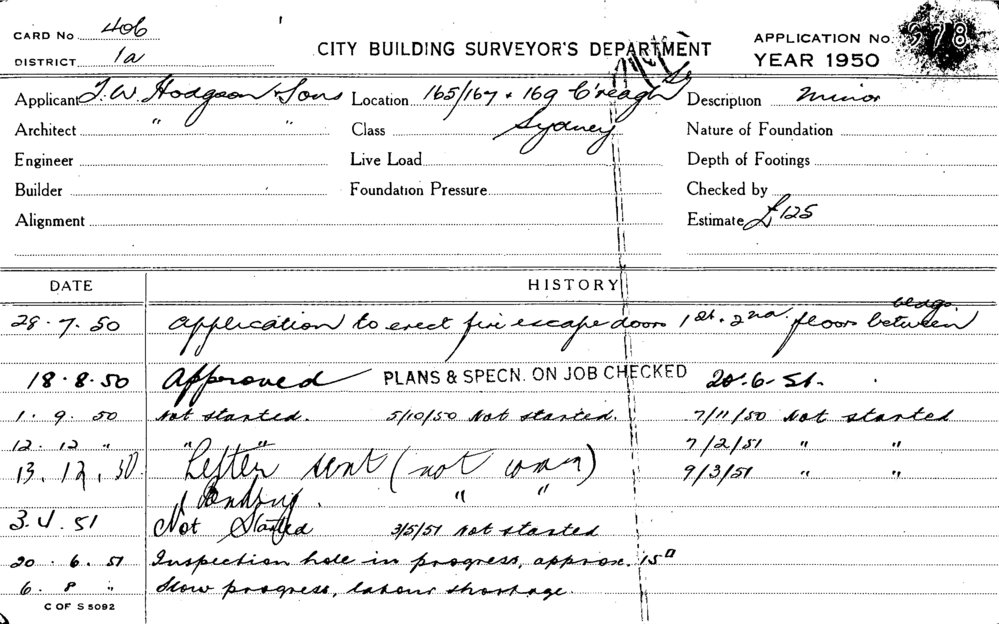 CARD No 406
DISTRICT 1a
CITY BUILDING SURVEYOR'S DEPARTMENT
APPLICATION No. 978
YEAR 1950
Applicant J.W. Hodgson & Sons Location 165/167 + 169 C'reagh St Description Minor
Architect " " Class Sydney Nature of Foundation
Engineer Live Load Depth of Footings
Builder Foundation Pressure Checked by
Alignment Estimate £125
DATE HISTORY
28.7.50 Application to erect fire escape doors 1st. 2nd. floors between bldgs.
18.8.50 Approved PLANS & SPECN. ON JOB CHECKED 20.6.51.
1.9.50 Not started. 5/10/50 Not started. 7/11/50 Not started
12.12 " "Letter" 7/2/51 " "
13.12.50. sent (not ) 9/3/51 " "
" "
3.4.51 Not Started 3/5/51 Not started
20.6.51 Inspection hole in progress, approx. 15"
6.8 " Slow progress, labour shortage.
C OF S 5092